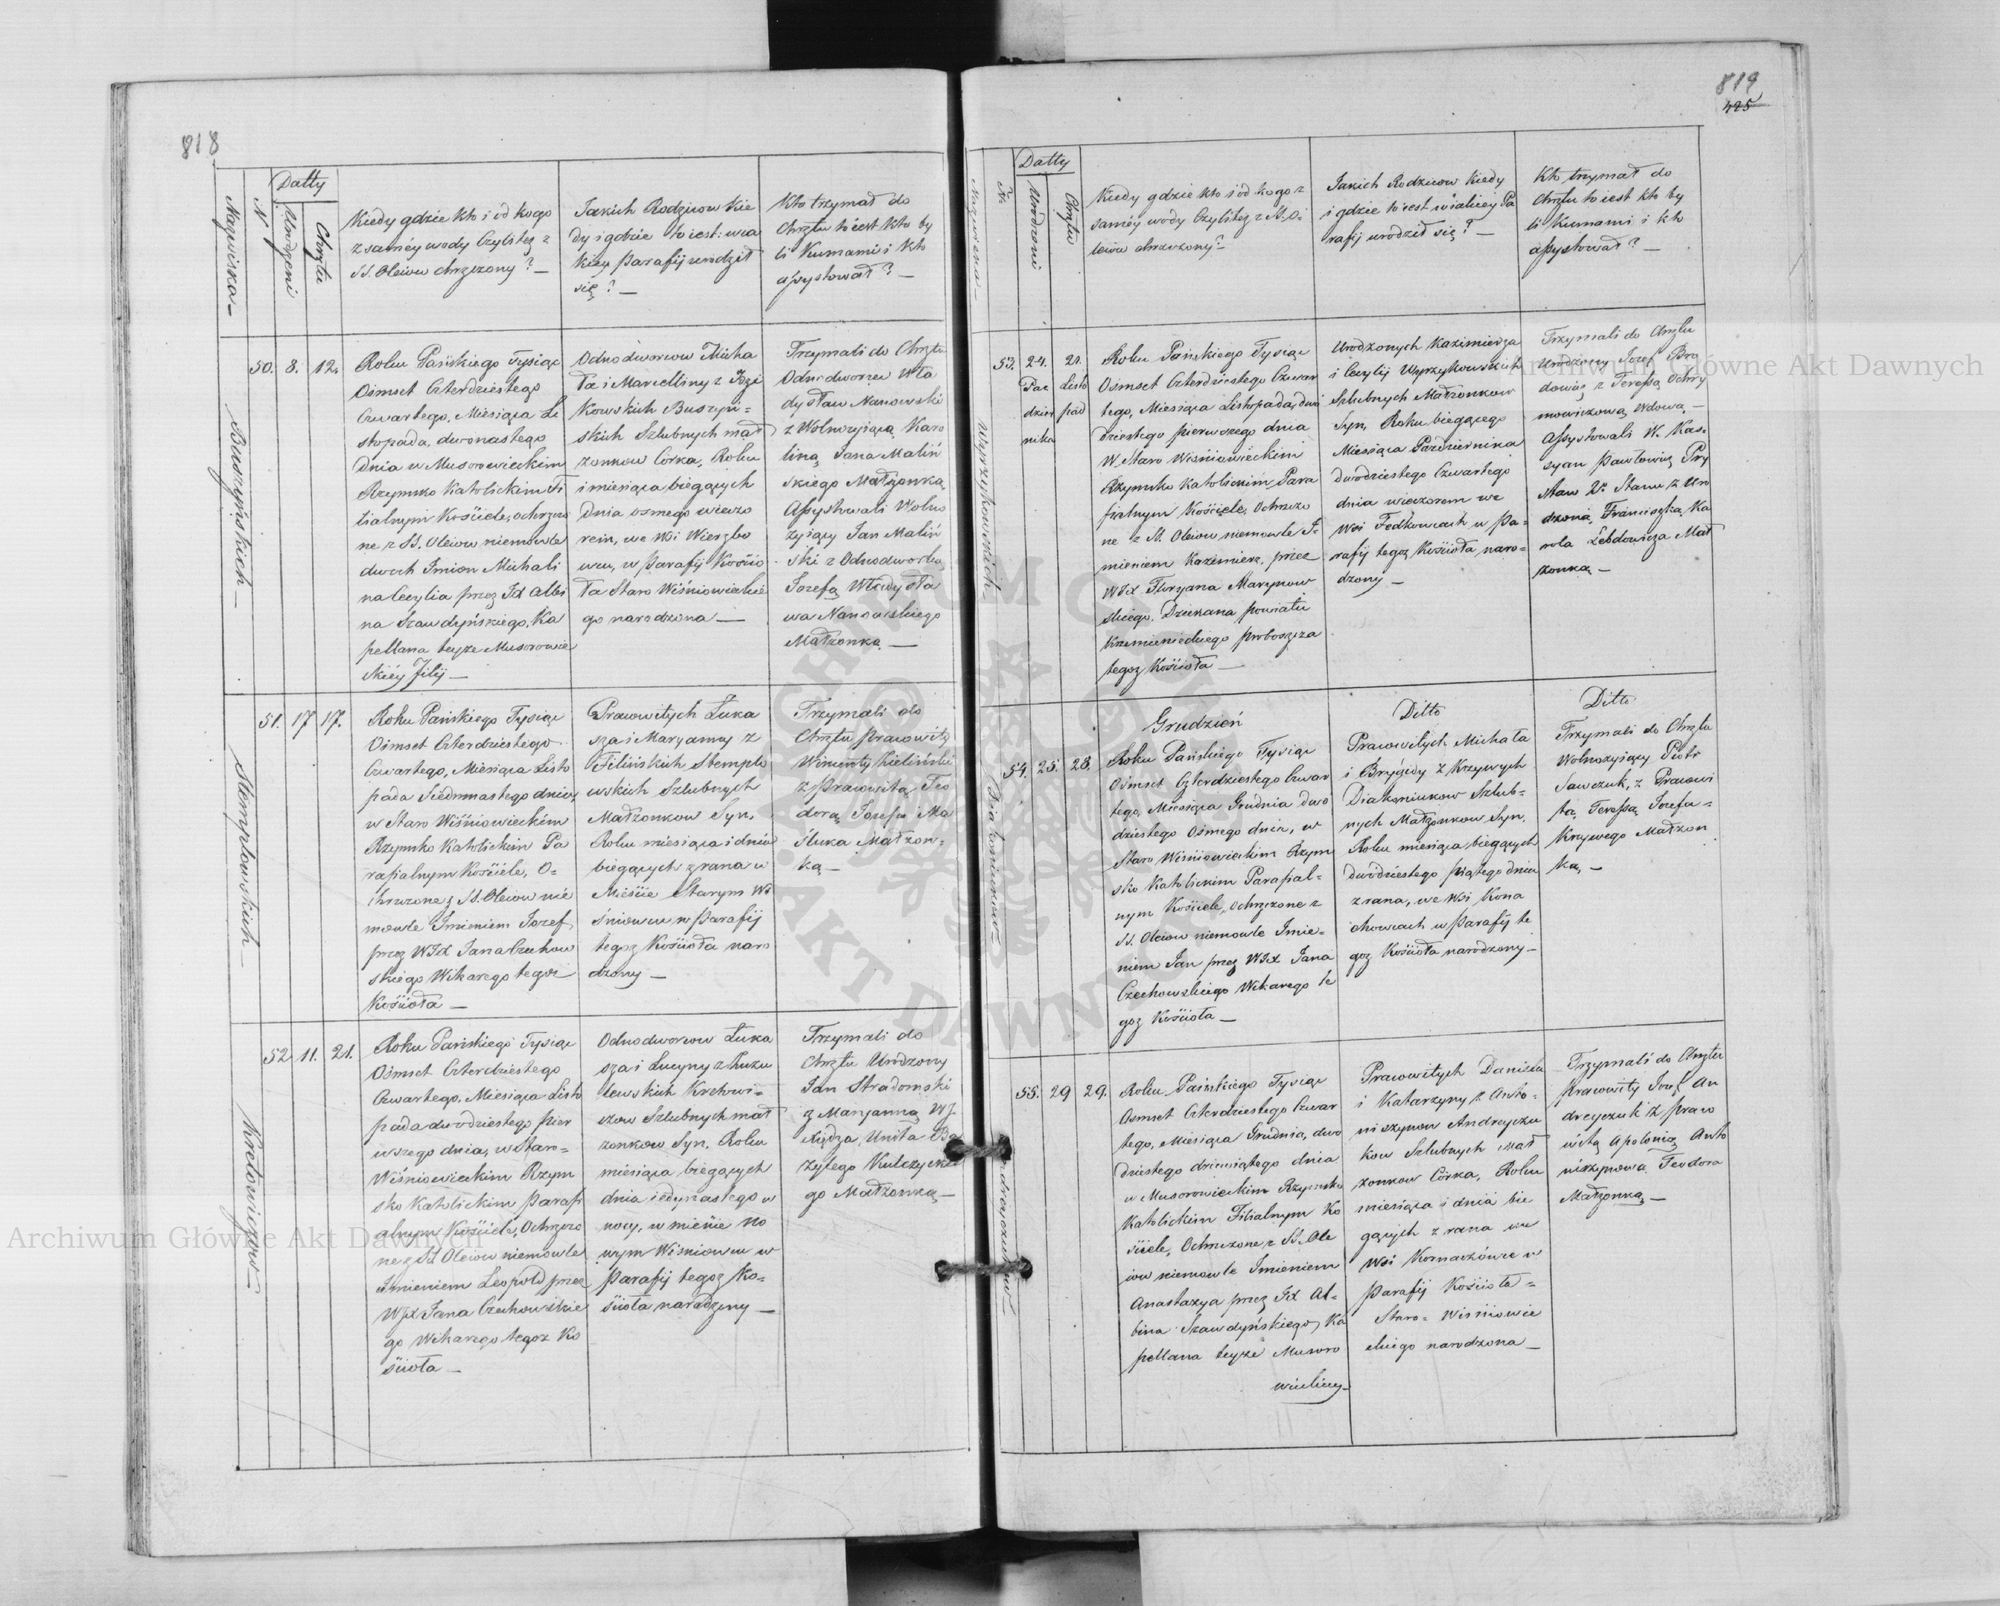 818
Nazwiska
N
Datty
Urodzeni
Chrztu
Kiedy gdzie kto i od kogo
z samey wody Czylitez z
SS. Oleiow chrzczony? —
Jakich Rodzicow Kie
dy i gdzie to iest: w ia
kiey Parafij urodził
się? —
Kto trzymał do
Chrztu to iest kto by
li Kumami i kto
assystował? —
Buszyńskich —
50. 8. 12.
Roku Pańskiego Tysiąc
Osmset Czterdziestego
Czwartego, Miesiąca Li
stopada, dwonastego
Dnia w Musorowieckim
Rzymsko Katolickim Fi
lialnym Kościele, ochrzczo
ne z SS. Oleiow niemowle
dwoch Imion Michali
na Cecylia przez JX Albi
na Szawdyńskiego, Ka
pellana teyze Musorowie
ckiéy filij —
Odnodworcow Micha
ła i Marcelliny z
kowskich Buszyń=
skich Szlubnych mał
zonkow Córka, Roku
i miesiąca biegących
dnia osmego wieczo
rem, we Wsi Wierzbo
wcu, w Parafij Kościo
ła Staro Wiśniowieckie
go narodzona —
Trzymali do Chrztu
Odnodworzec Wła
dysław Nanowski
z Wolnozyjącą Karo
liną, Jana Maliń
skiego Małżonką
Assystowali Wolno
żyjący Jan Maliń
ski z Odnodworką
Jozefą Władysła
wa Nanowskiego
Małżonką —
Stempkowskich —
51. 17 17.
Roku Pańskiego Tysiąc
Osmset Czterdziestego
Czwartego, Miesiąca Listo
pada Siedmnastego dnia,
w Staro Wiśniowieckim
Rzymsko Katolickim Pa
rafialnym Kościele, O=
chrzczone z SS. Oleiow nie
mowle Imieniem Jozef,
przez WJX Jana Czechow
skiego Wikarego tegoz
Kościoła —
Prawowitych Łuka
sza i Maryanny z
Filińskich Stempko
wskich Szlubnych
Małżonkow Syn,
Roku miesiąca i dnia
biegących z rana w
Mieście Starym Wi
śniowcu w Parafij
tegoz Kościoła naro
dzony —
Trzymali do
Chrztu Prawowity
Wincenty Zieliński
z Prawowitą Teo
dorą Jozefa Ma
śluka Małzon=
ką —
52 11. 21.
Roku Pańskiego Tysiąc
Osmset Czterdziestego
Czwartego, Miesiąca Listo
pada dwodziestego Pier
wszego dnia, w Staro=
Wiśniowieckim Rzym
sko Katolickim Parafi
alnym Kościele, Ochrzczo
ne z SS Oleiow niemowle
Imieniem Leopold przez
WJX Jana Czechowskie
go Wikarego tegoz Ko
ścioła —
Odnodworcow Łuka
sza i Lucyny z
lewskich
Szlubnych mał
zonkow Syn, Roku
miesiąca biegących
dnia iedynastego w
nocy, w mieście No
wym Wiśniowcu w
Parafij tegoz Ko=
ścioła narodzony —
Trzymali do
Chrztu Urodzony
Jan Stradomski
z Maryanną WJ
Xiędza Unita Ba
zylego Kulczyckie
go Małżonką —
819
425
Nazwiska —
Nr.
Datty
Urodzeni
Chrztu
Kiedy gdzie kto i od kogo z
saméy wody Czylitez z SS. O
leiow chrzczony? —
Jakich Rodzicow Kiedy
i gdzie to iest w iakiey Pa
rafij urodził się? —
Kto trzymał do
Chrztu to iest kto by
li Kumami i kto
assystował? —
Wyrzykowskich
53. 24. 21.
Paz Listo
dzier pad
nika
Roku Pańskiego Tysiąc
Osmset Czterdziestego Czwar
tego, Miesiąca Listopada, dwó
dziestego pierwszego dnia
W Staro Wiśniowieckim
Rzymsko Katolickim Para
fialnym Kościele, Ochrzczo
ne z SS. Oleiow niemowle I=
mieniem Kazimierz, przez
WJX Floryana Marynow
skiego, Dziekana powiatu
Krzemienieckiego Proboszcza
tegoz Kościoła —
Urodzonych Kazimierza
i Cecylij Wyrzykowskich
Szlubnych Małzonkow
Syn, Roku biegącego
Miesiąca Pazdziernika
dwodziestego Czwartego
dnia wieczorem we
Wsi Fedkowcach w Pa=
rafij tegoz Kościoła, naro=
dzony —
Trzymali do Chrztu
Urodzony Jozef Bro
dowicz z Teressą Ochry
mowiczową Wdową, —
Assystowali W. Kas=
syan Pawłowicz Pry
staw 2o Stanu z Uro
dzoną, Franciszką, Ka
rola Lebdowicza Mał
zonką —
54. 25. 28.
Grudzień
Roku Pańskiego Tysiąc
Osmset Czterdziestego Czwar
tego, Miesiąca Grudnia dwo
dziestego Osmego dnia, w
Staro Wiśniowieckim Rzym
sko Katolickim Parafial=
nym Kościele, Ochrzczone z
SS. Oleiow niemowle Imie=
niem Jan przez WJX Jana
Czechowskiego Wikarego te
goz Kościoła —
Ditto
Prawowitych Michała
i Brygidy z Krzywych
Diakoniukow Szlub=
nych Małżonkow Syn,
Roku miesiąca biegących
dwódziestego piątego dnia
z rana, we Wsi Kona
chowcach w Parafij te
goz Kościoła narodzony —
Ditto
Trzymali do Chrztu
Wolnozyjący Piotr
Sawczuk, z Prawowi
tą, Teressą Jozefa=
Krzywego Małzon
ką, —
55. 29 29.
Roku Pańskiego Tysiąc
Osmset Czterdziestego Czwar
tego, Miesiąca Grudnia, dwo
dziestego dziewiątego dnia
w Musorowieckim Rzymsko
Katolickim Filialnym Ko
ściele, Ochrzczone z SS. Ole
iow niemowle Imieniem
Anastazya przez JX Al=
bina Szawdyńskiego, Ka
pellana teyze Musoro
wieckiey —
Prawowitych Daniela
i Katarzyny z Anto=
niszynow Andreyczu
kow Szlubnych Mał
zonkow Córka, Roku
miesiąca i dnia bie
gących z rana we
Wsi Kornaczówce w
Parafij Kościoła=
Staro= Wiśniowie
ckiego narodzona —
Trzymali do Chrztu
Prawowity Jozef An
dreyczuk z Prawo
witą Apolonią Anto
niszynową Teodora
Małżonką —
Archiwum Główne Akt Dawnych
Archiwum Główne Akt Dawnych